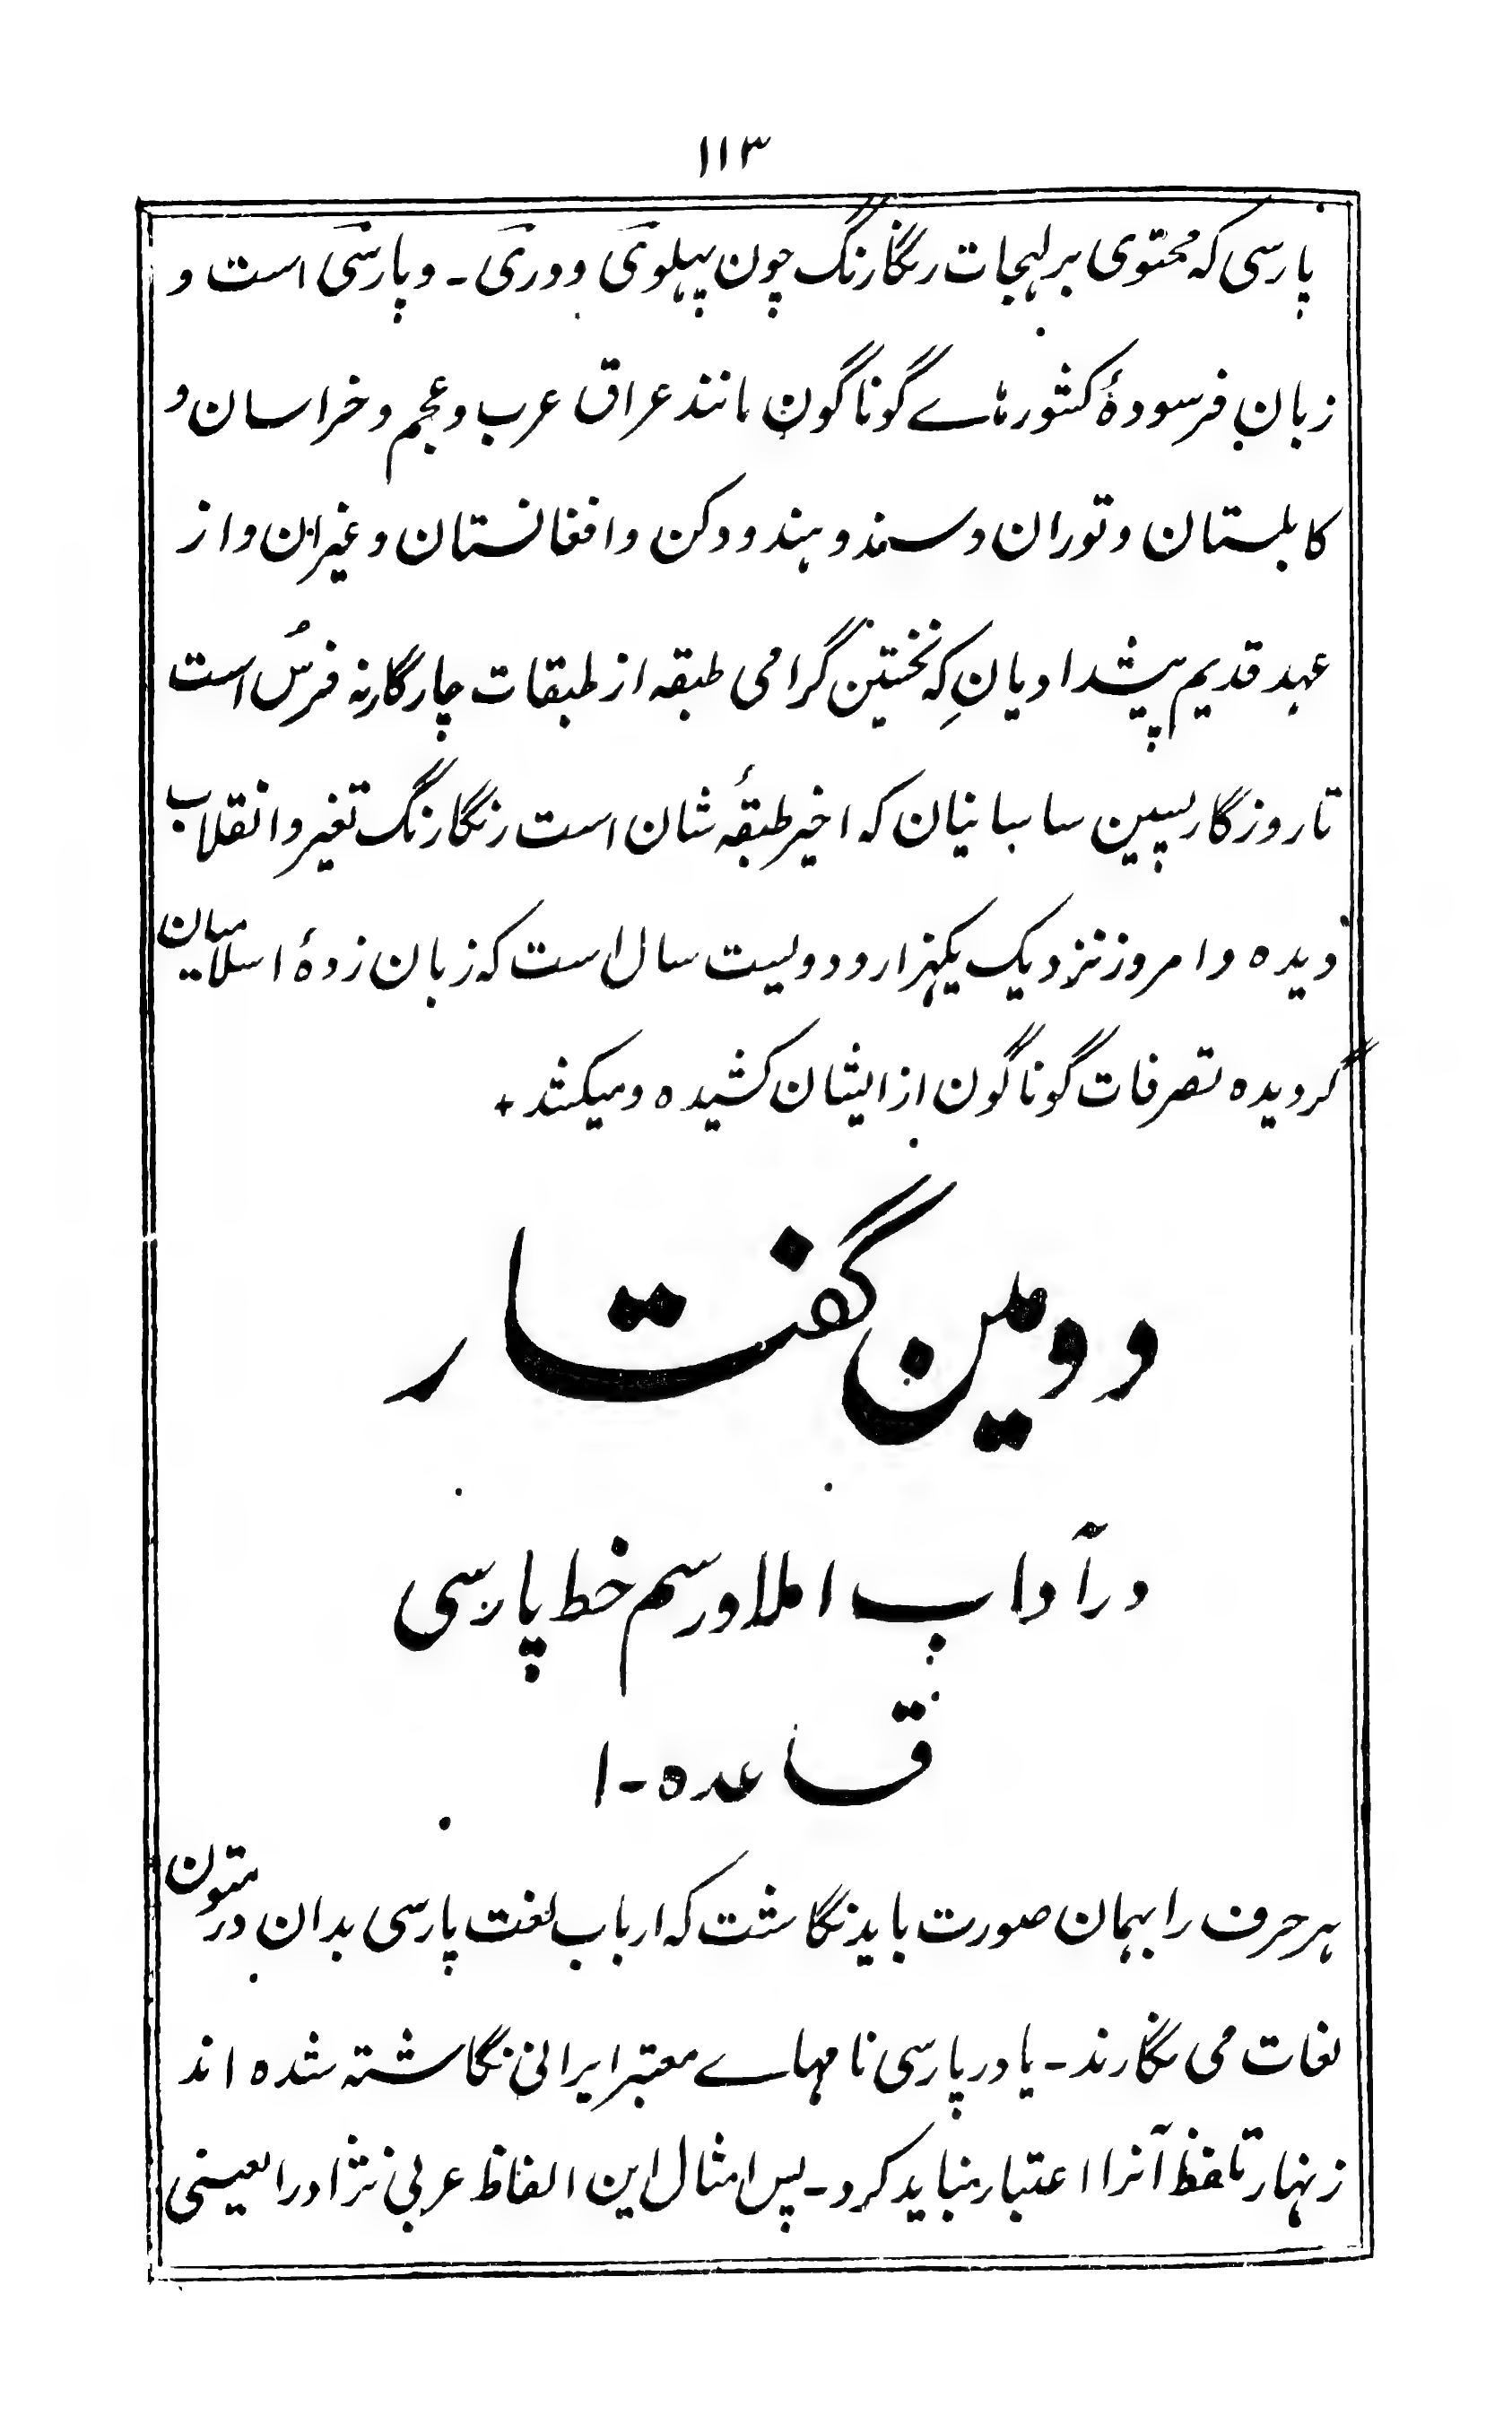 ۱۱۳
پارسی که محتوی بر لهجات رنگارنگ چون پهلوی و دری - و پارسی است و
زبان فرسودهٔ کشورهاے گوناگون مانند عراق عرب و عجم و خراسان و
کابلستان و توران و سند و هند و دکن و افغانستان و غیر این و از
عهد قدیم پیشدادیان که نخستین گرامی طبقه از طبقات چارگانه فرس است
تا روزگار پسین ساسانیان که اخیر طبقهٔ شان است رنگارنگ تغیر و انقلاب
دیده و امروز نزدیک یکهزار و دولیست سال است که زبان زدهٔ اسلامیان
گردیده تصرفات گوناگون از ایشان کشیده و میکشد +
دومین گفتار
در آداب املا و رسم خط پارسی
قاعده - ۱
هر حرف را بهمان صورت باید نگاشت که ارباب لغت پارسی بدان در متون
لغات می نگارند - یا در پارسی نامهاے معتبر ایرانی نگاشته شده اند
زنهار تلفظ آنرا اعتبار نباید کرد - پس امثال این الفاظ عربی نژاد را یعنی